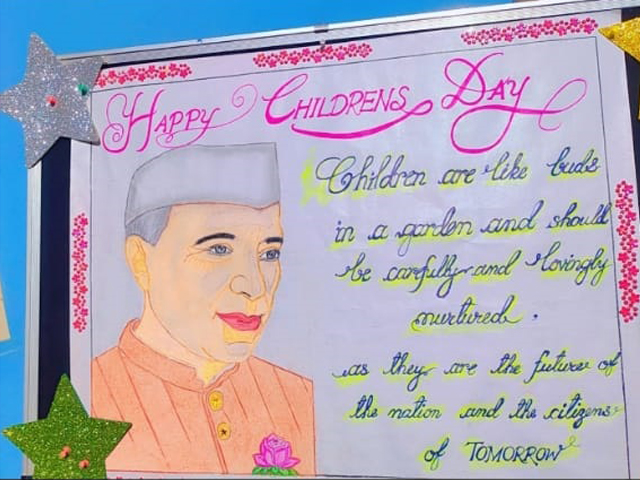 HAPPY CHILDRENS DAY
Children are like buds
in a garden and should
be carefully and lovingly
nurtured.
as they are the future of
the nation and the citizens
of TOMORROW